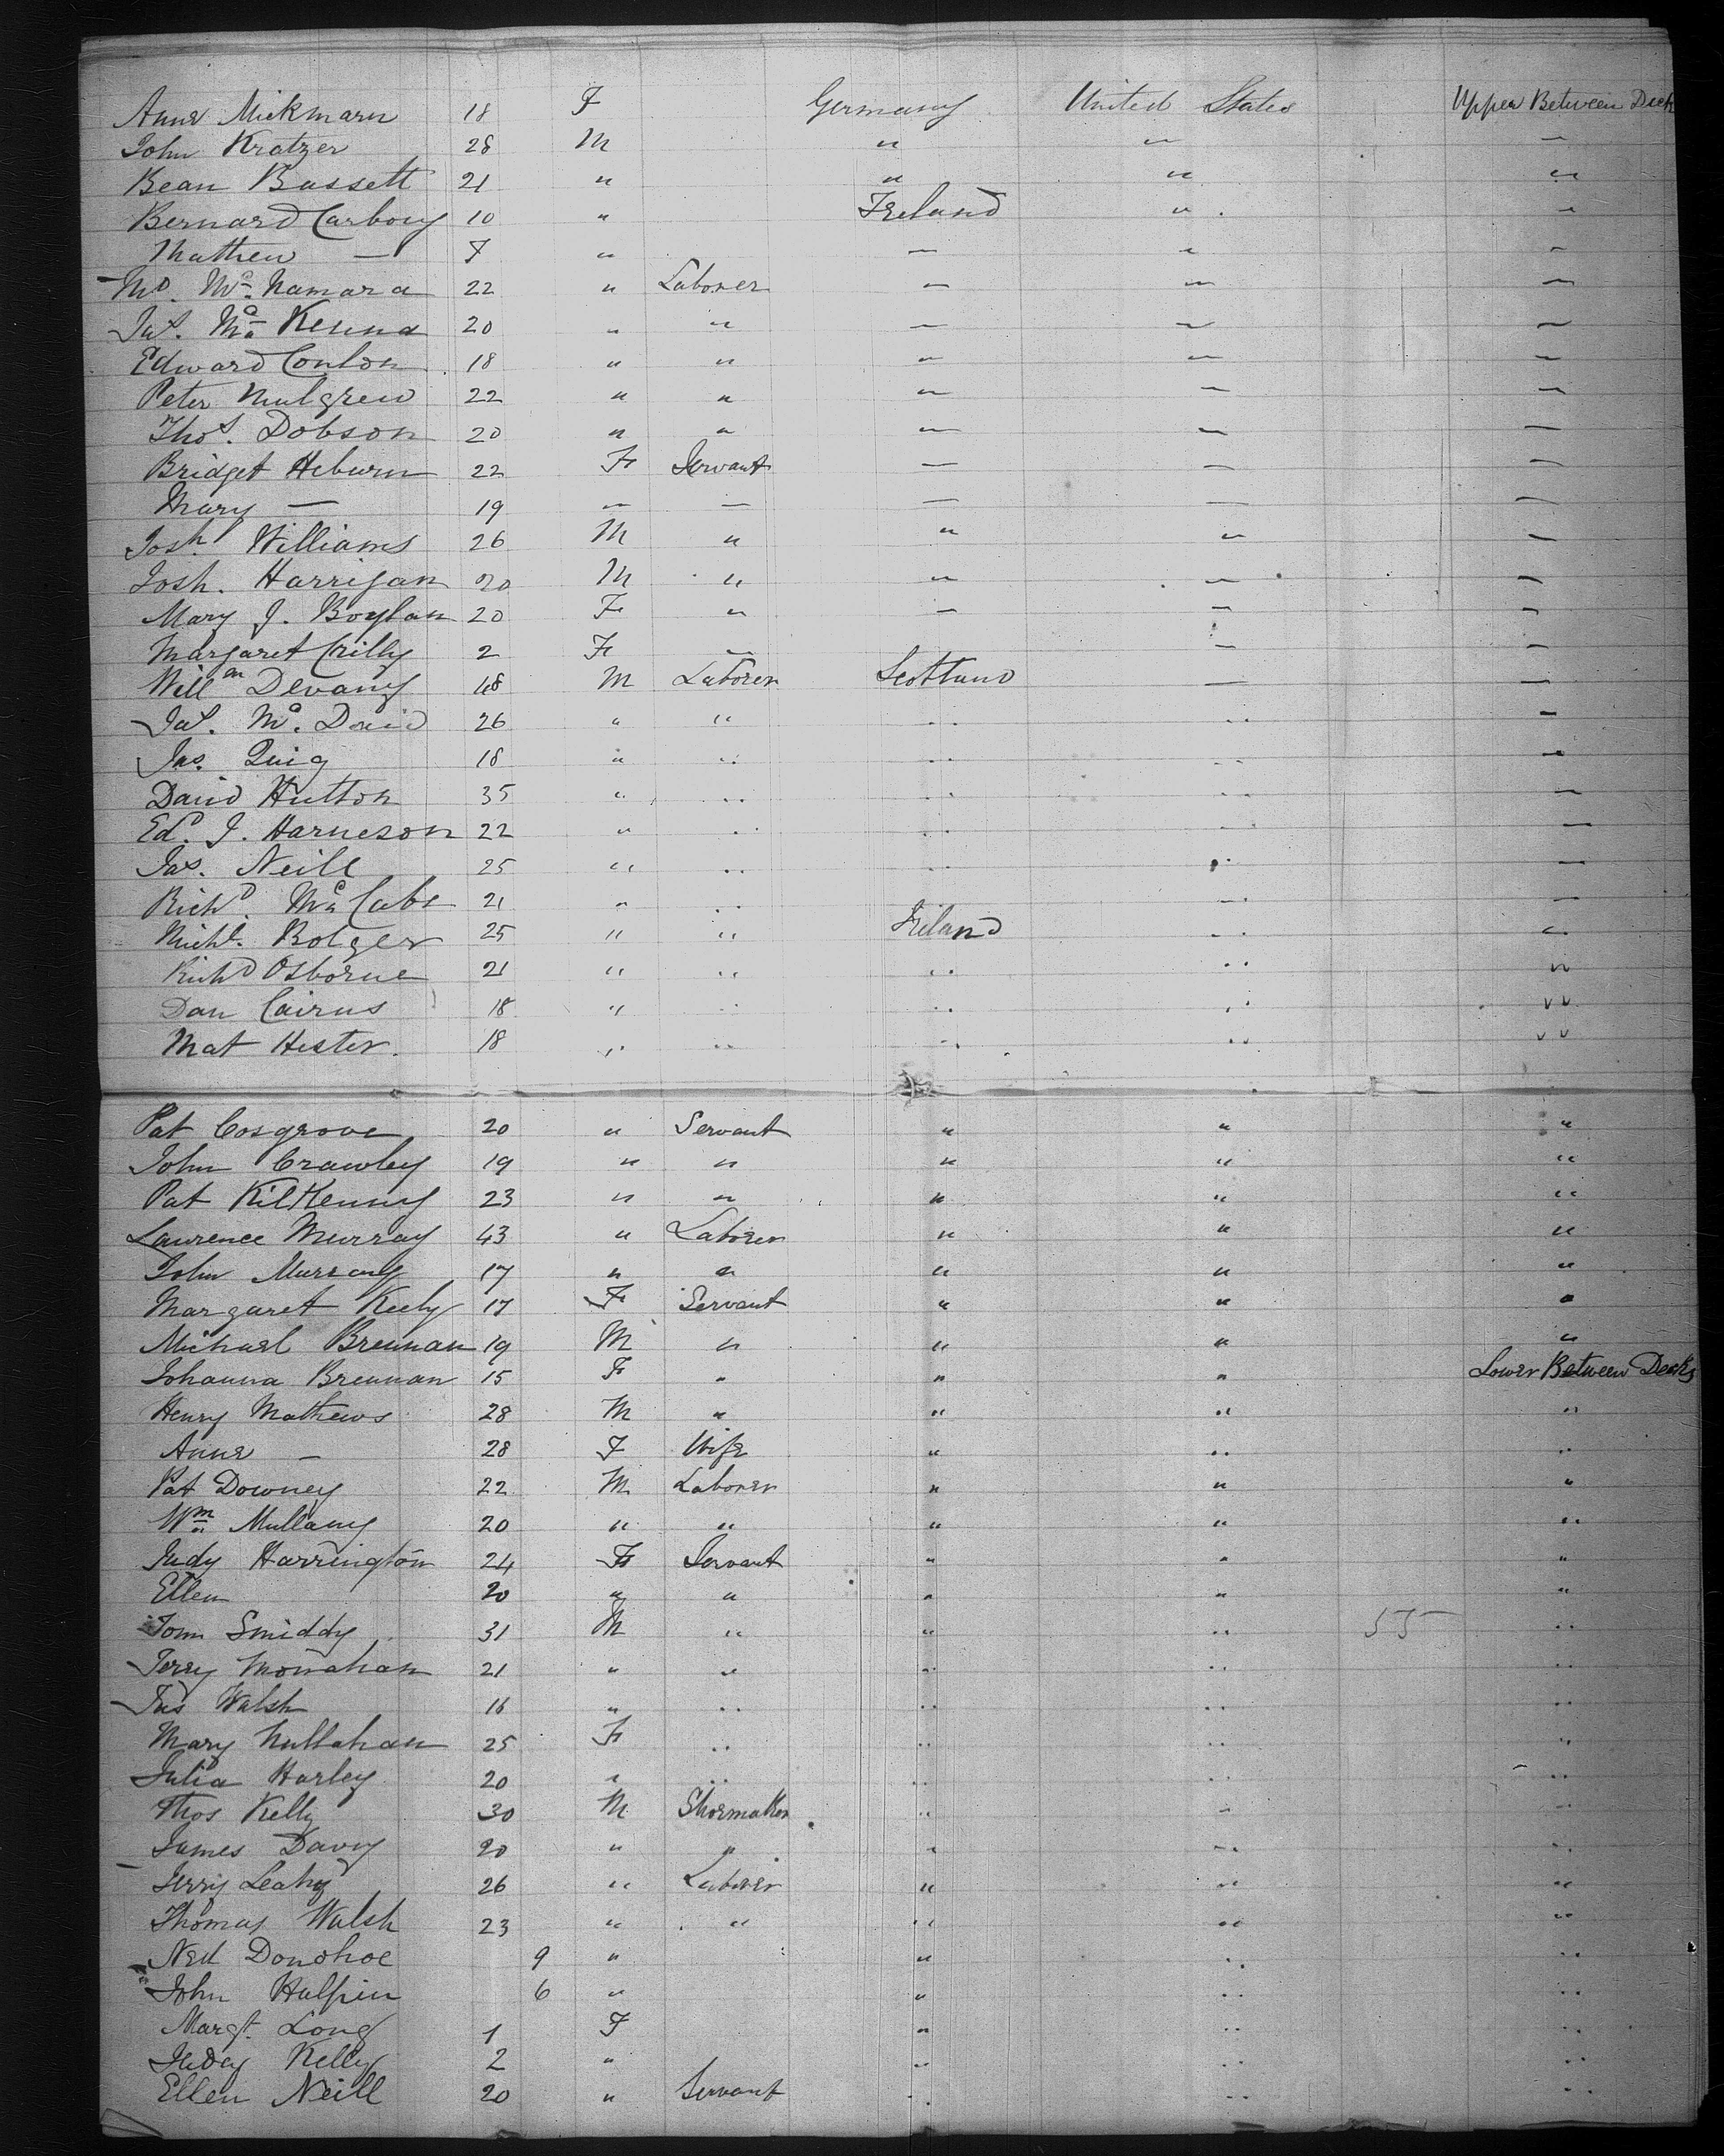 Anne Mickmann 18 F Germany United States Upper Between Deck
John Kratzer 28 M " " "
Bean Bassett 21 " " " "
Bernard Carbony 10 " Ireland " "
Mathew — 7 " — " "
Md. Mc. Namara 22 " Laborer — " —
Jas. Mc Kenna 20 " " — — —
Edward Conlon 18 " " — — —
Peter Mulgrew 22 " " — — —
Thos. Dobson 20 " " — — —
Bridget Heburn 22 F Servant — — —
Mary — 19 — — — — —
Josh Williams 26 M " " " —
Josh. Harrigan 20 M " " — —
Mary J. Boylan 20 F " — — —
Margaret Crilly 2 F — — —
Willm Devany 48 M Laborer Scotland — —
Jas. Mc. Daid 26 " " " " —
Jas. Quig 18 " " " " —
David Hutton 35 " " " " —
Ed. J. Harneson 22 " " " " —
Jas. Neill 25 " " " " —
Richd. Mc Cabe 21 " " " —
Michl. Bolger 25 " " Ireland " "
Richd Osborne 21 " " " " "
Dan Cairns 18 " " " " "
Mat Hester. 18 " " " " "
Pat Cosgrove 20 " Servant " " "
John Crawley 19 " " " " "
Pat Kilkenny 23 " " " " "
Lawrence Murray 43 " Laborer " " "
John Murray 17 " " " " "
Margaret Keely 17 F Servant " " "
Michael Brennan 19 M " " " "
Johanna Brennan 15 F " " " Lower Between Decks
Henry Mathews 28 M " " " "
Anne — 28 F Wife " " "
Pat Downey 22 M Laborer " " "
Wm Mullany 20 " " " " "
Judy Harrington 24 F Servant " " "
Ellen 20 " " " " "
Tom Smiddy 31 M " " " 55 "
Jerry Monahan 21 " " " " "
Jas Walsh 16 " " " " "
Mary Mullahan 25 F " " " "
Julia Harley 20 " " " " "
Thos Kelly 30 M Shoemaker " " "
James Davy 20 " " " " "
Jerry Leahy 26 " Laborer " " "
Thomas Walsh 23 " " " " "
Ned Donohoe 9 " " " "
John Halpin 6 " " " "
Margt. Long 1 F " " "
Judy Kelly 2 " " " "
Ellen Neill 20 " Servant " " "